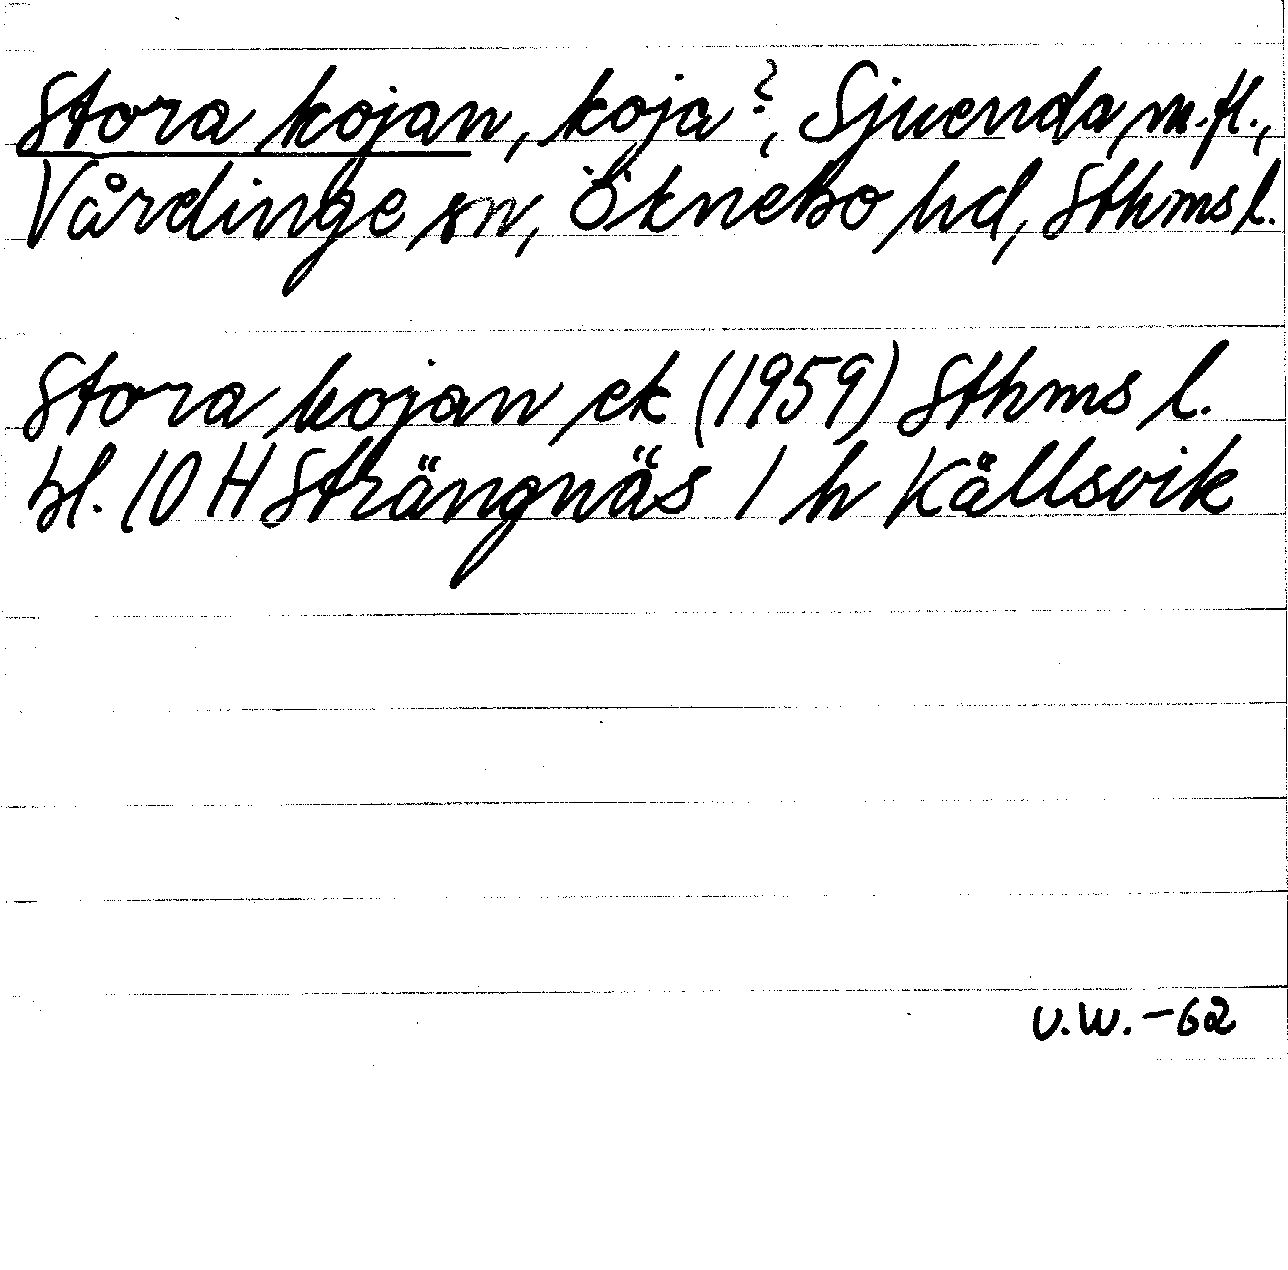 Stora kojan, koja?, Sjuenda m.fl.,
Vårdinge sn, Öknebo hd, Sthms l.
Stora kojan ek (1959) Sthms l.
bl. 10 H Strängnäs 1 h Källsvik
U.W. -62